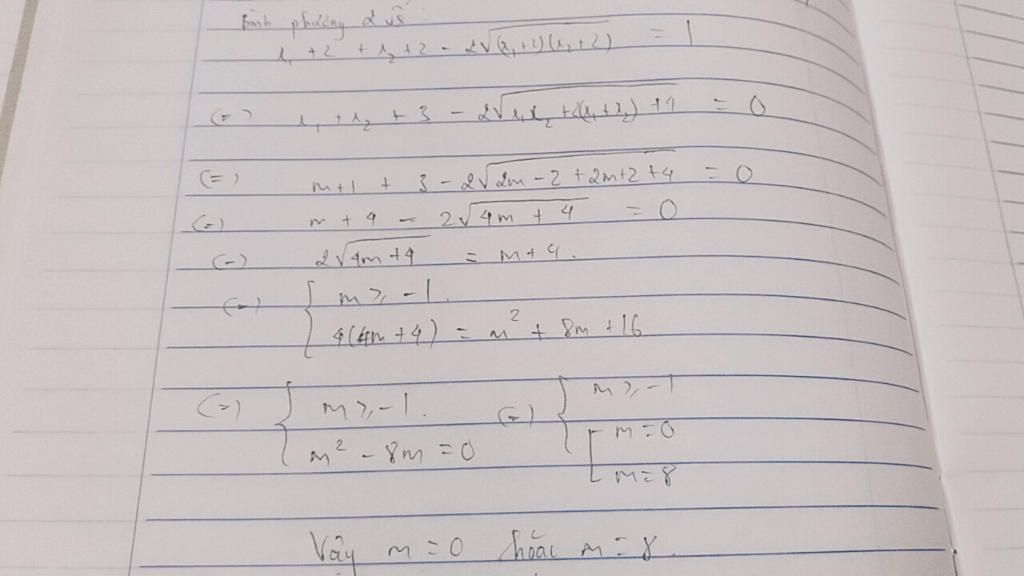 Bình phương 2 vế
x₁ + 2 + x₂ + 2 - 2√((x₁+2)(x₂+2)) = 1
(=) x₁ + x₂ + 3 - 2√(x₁x₂ + 2(x₁+x₂) + 4) = 0
(=) m+1 + 3 - 2√(2m - 2 + 2m+2 + 4) = 0
(=) m + 4 - 2√(4m + 4) = 0
(=) 2√(4m+4) = m+4.
(=) { m ≥ -1.
4(4m+4) = m² + 8m + 16
(=) { m ≥ -1. (=) { m ≥ -1
m² - 8m = 0 [ m = 0
m = 8
Vậy m = 0 hoặc m = 8.